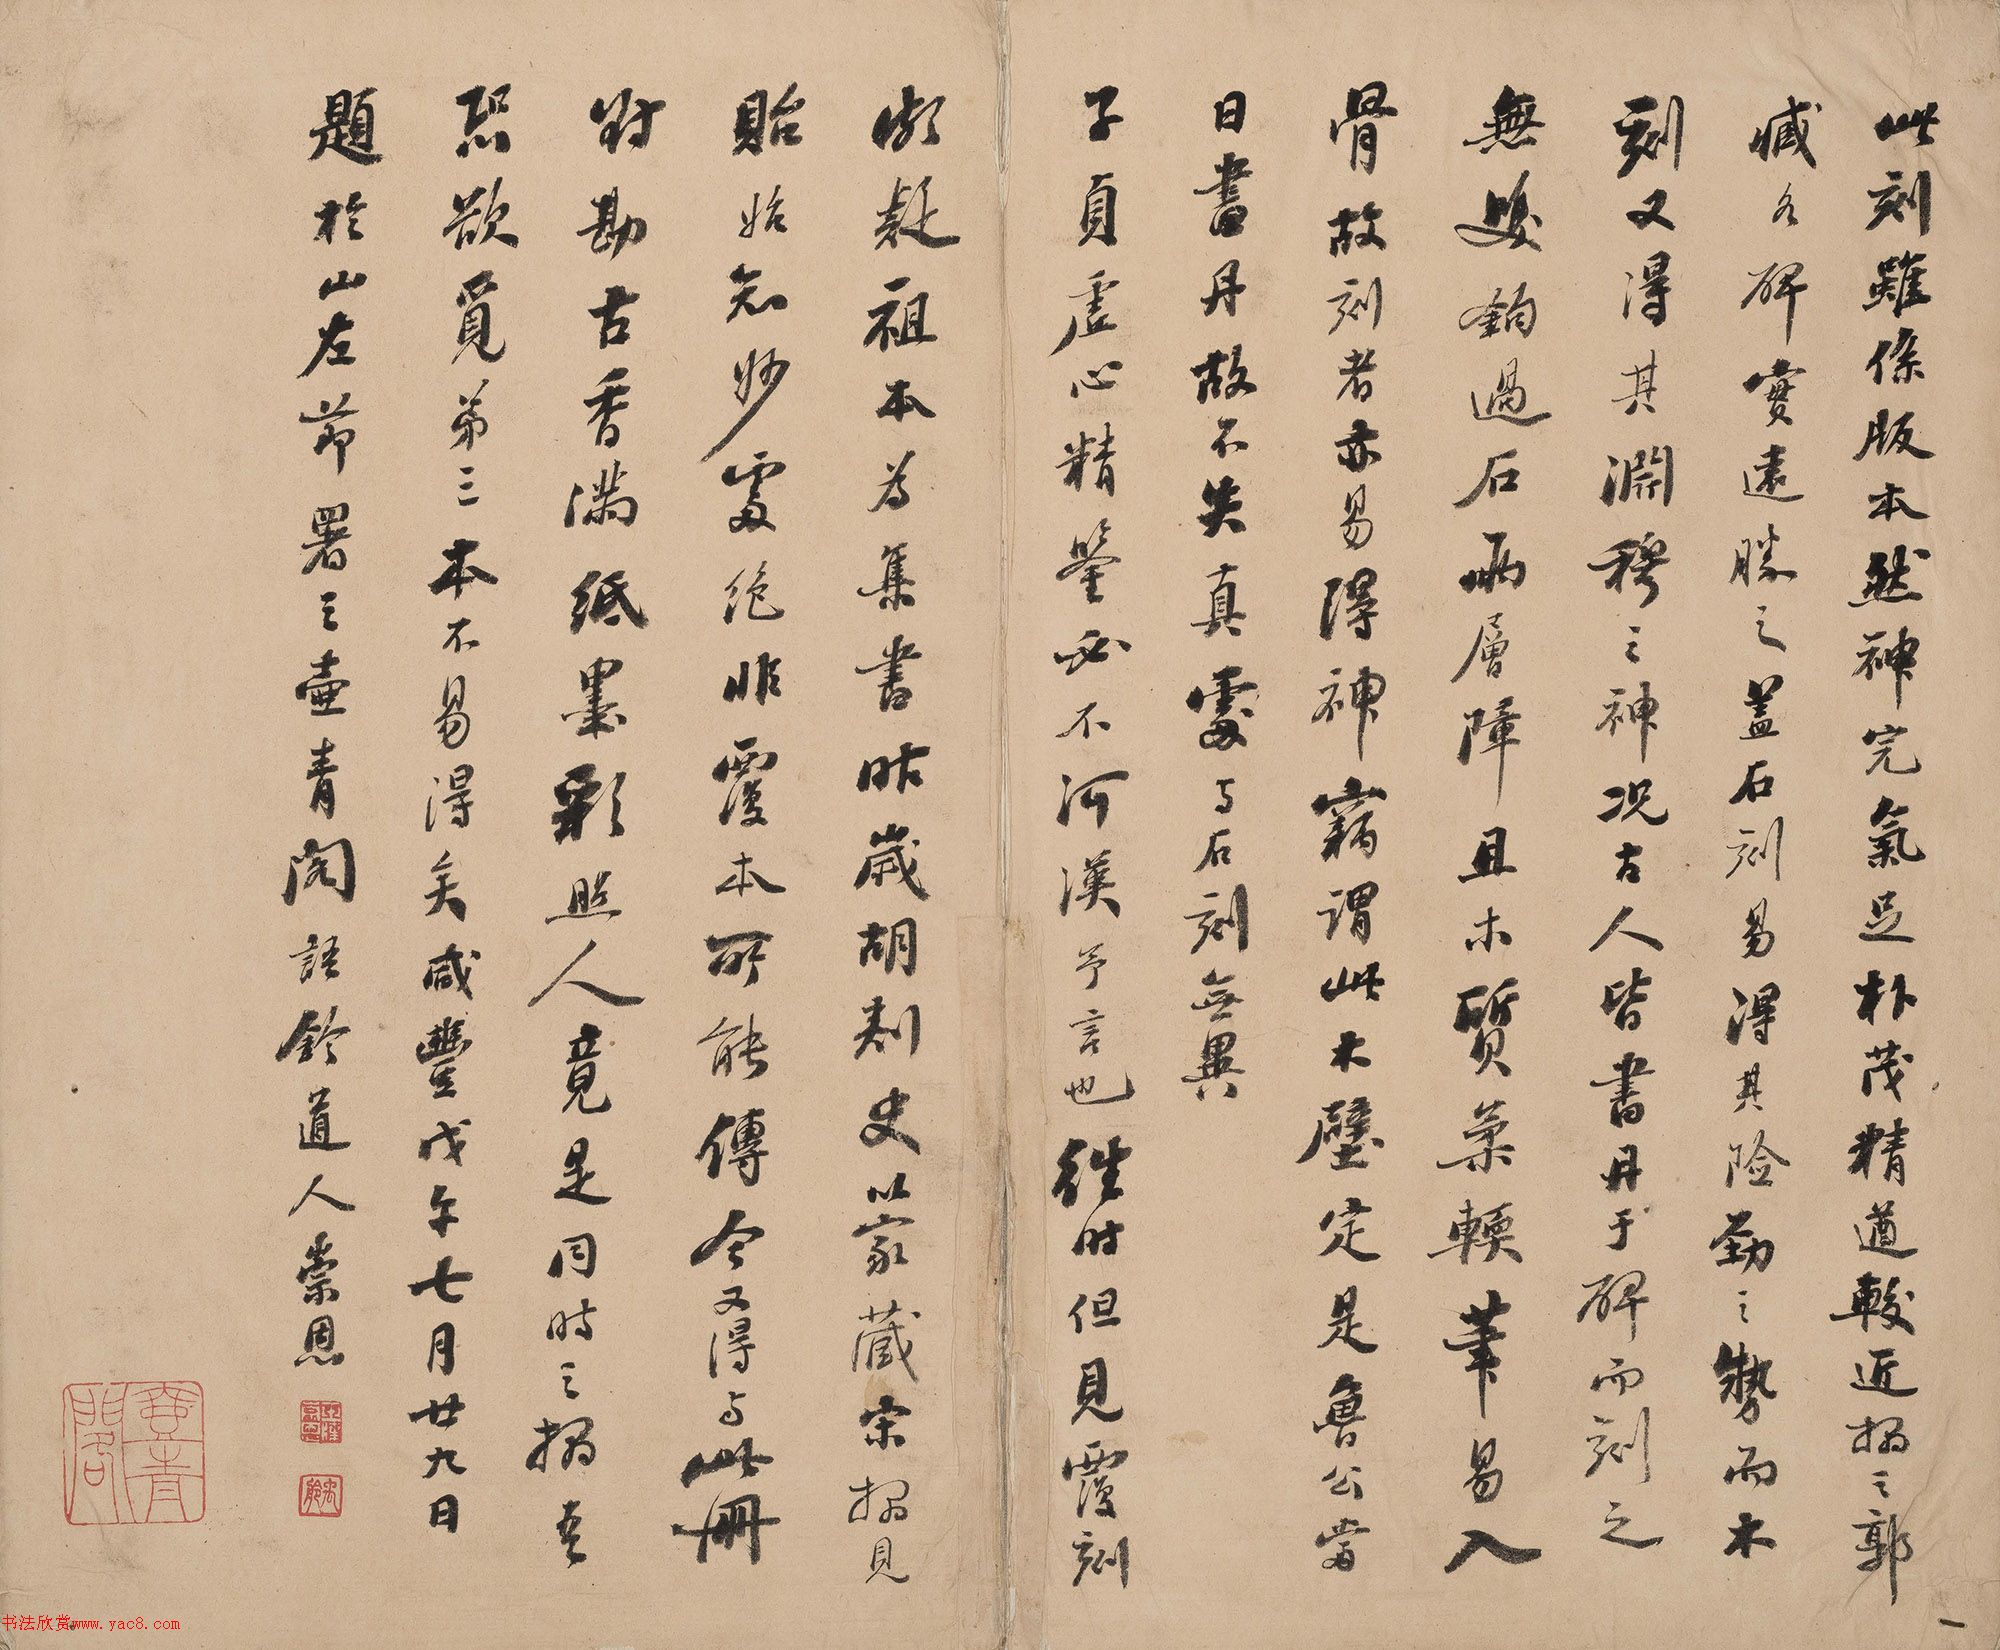 此刻雖係版本然神完氣足朴茂精遒較近搨之郭
臧各碑實遠勝之蓋石刻易得其险勁之勢而木
刻又得其淵穆之神况古人皆書丹于碑而刻之
無雙鈎過石兩層障且木質柔輭筆易入
骨故刻者亦易得神竊謂此木壁定是魯公當
日書丹故不失真處与石刻無異
子貞虚心精鑒必不河漢予言也往时但見覆刻
漸疑祖本為集書昨歲胡刺史以家藏宋搨見
貽始知妙處绝非覆本所能傳今又得与此冊
对勘古香满紙墨彩照人竟是同時之搨吾
恐欲覓弟三本不易得矣咸豐戊午七月廿九日
題於山左節署之壷青閣語鈴道人崇恩
书法欣赏www.yac8.com